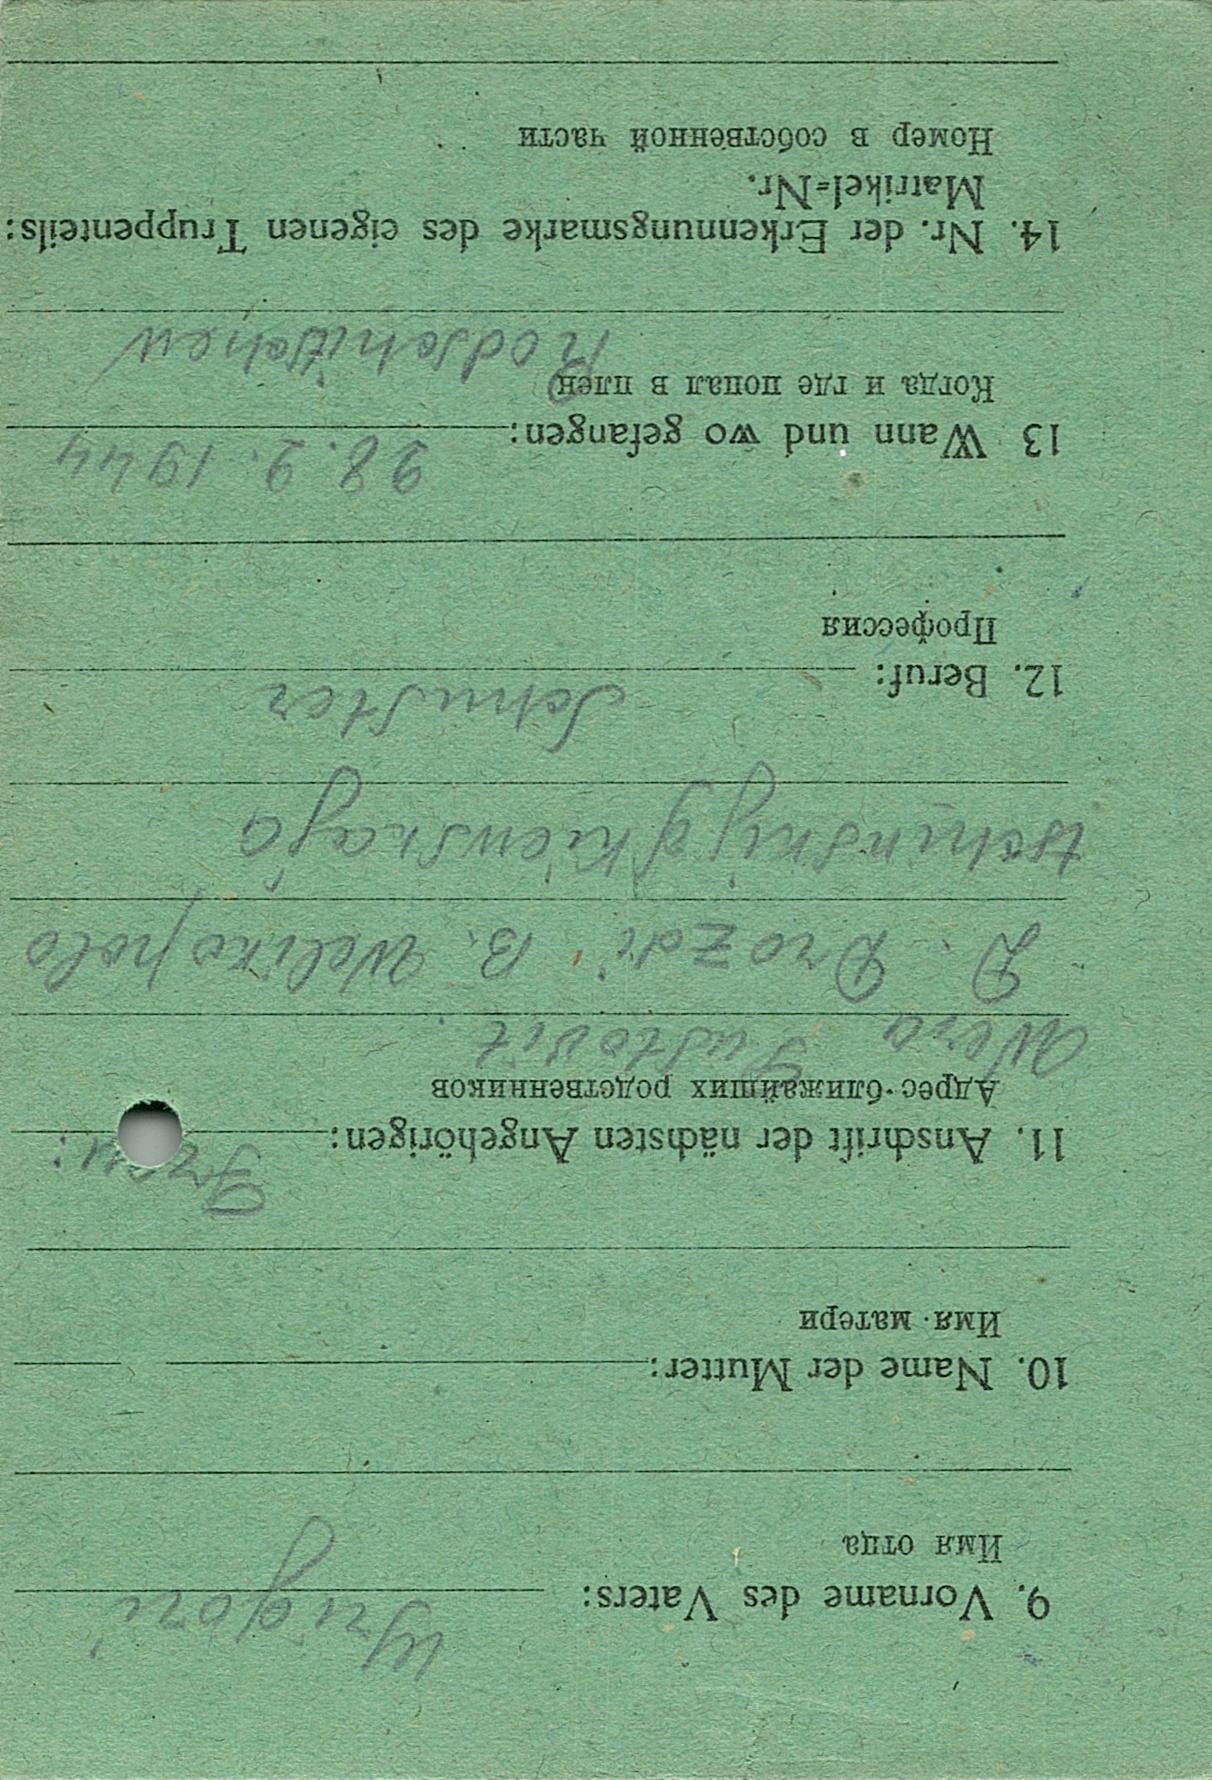 9. Vorname des Vaters: Grigori
Имя отца
10. Name der Mutter:
Имя матери
11. Anschrift der nächsten Angehörigen: Frau:
Адрес ближайших родственников
Wera Pustovit
D. Drozdi B. Welikopolo
tschinskij g Kiewskaja
12. Beruf: Schuster
Профессия
13 Wann und wo gefangen: 28. 2. 1944
Когда и где попал в плен
14. Nr. der Erkennungsmarke des eigenen Truppenteils:
Matrikel=Nr.
Номер в собственной части